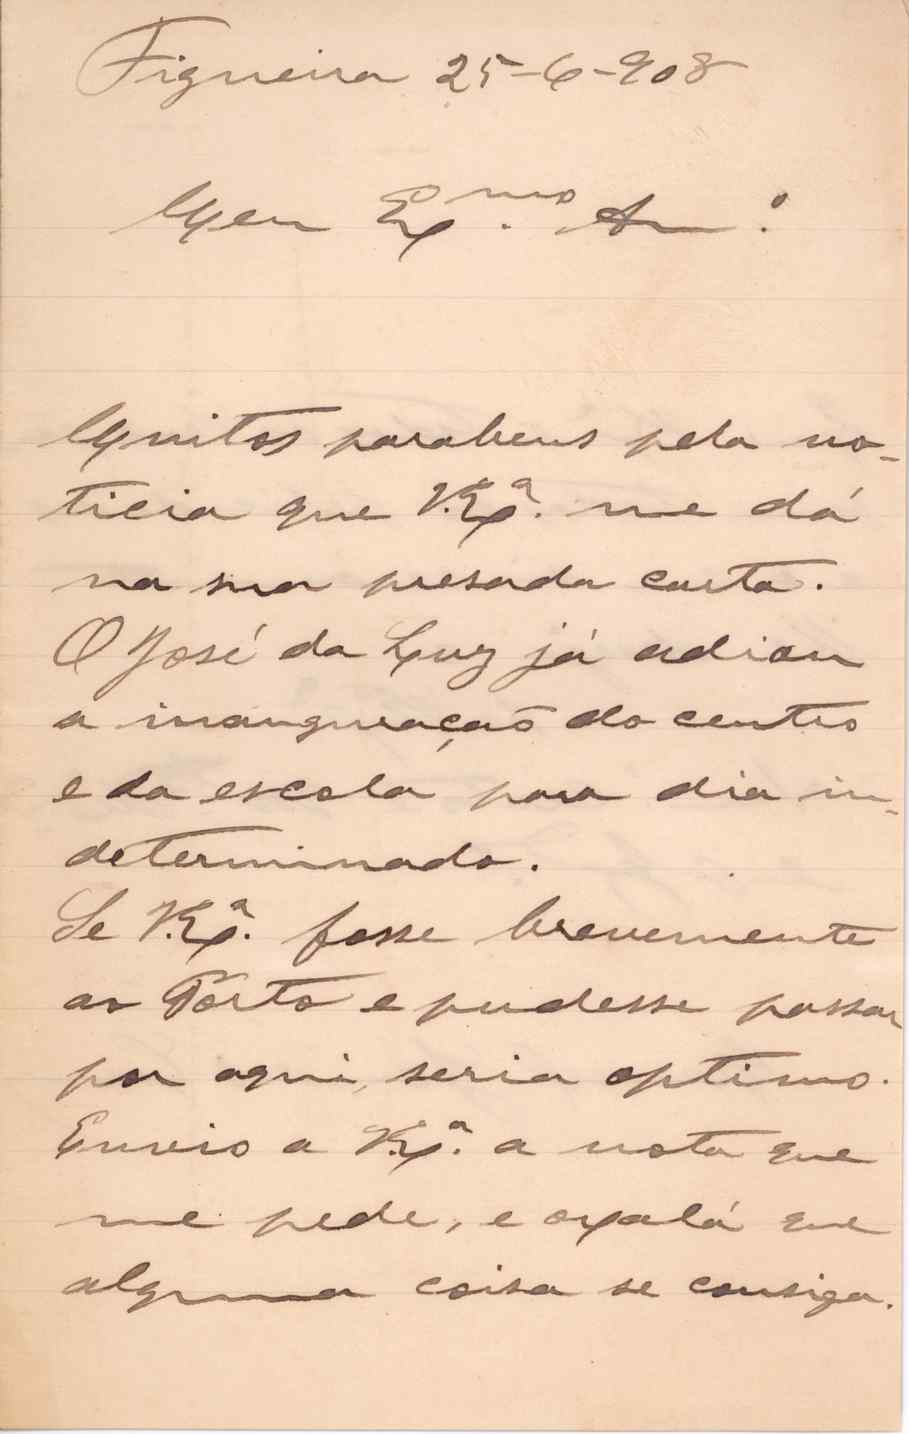 Figueira 25-6-908
Meu Ex.mo Am.º
Muitos parabens pela no-
ticia que V.Ex.ª me dá
na sua presada carta.
O José da Luz já adiou
a inauguração do centro
e da escola para dia in-
determinado.
Se V.Ex.ª fosse brevemente
ao Porto e pudesse passar
por aqui, seria optimo.
Envio a V.Ex.ª a nota que
me pede, e oxalá que
alguma coisa se consiga.